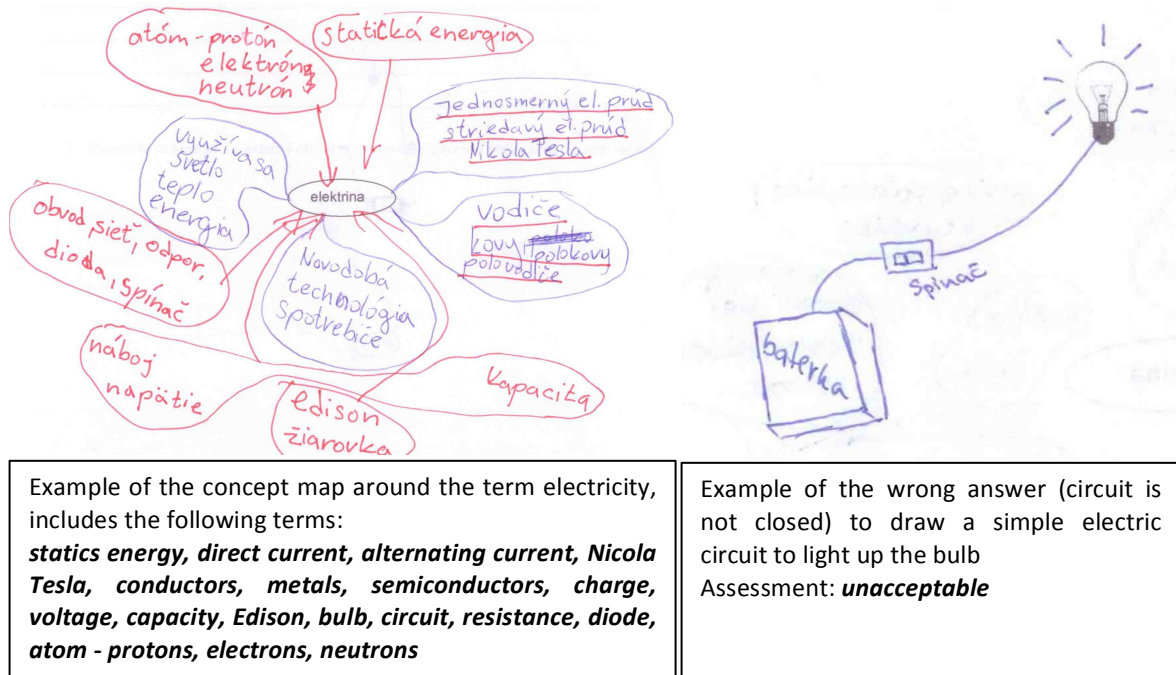 atóm - protón
elektrón
neutrón
statická energia
Jednosmerný el. prúd
striedavý el. prúd
Nikola Tesla
Využíva sa
svetlo
teplo
energia
elektrina
vodiče
kovy, polokovy
polovodiče
obvod, sieť, odpor,
dioda, spínač
Novodobá
technológia
Spotrebiče
náboj
napätie
Kapacita
edison
žiarovka
Spínač
baterka
Example of the concept map around the term electricity,
includes the following terms:
statics energy, direct current, alternating current, Nicola
Tesla, conductors, metals, semiconductors, charge,
voltage, capacity, Edison, bulb, circuit, resistance, diode,
atom - protons, electrons, neutrons
Example of the wrong answer (circuit is
not closed) to draw a simple electric
circuit to light up the bulb
Assessment: unacceptable